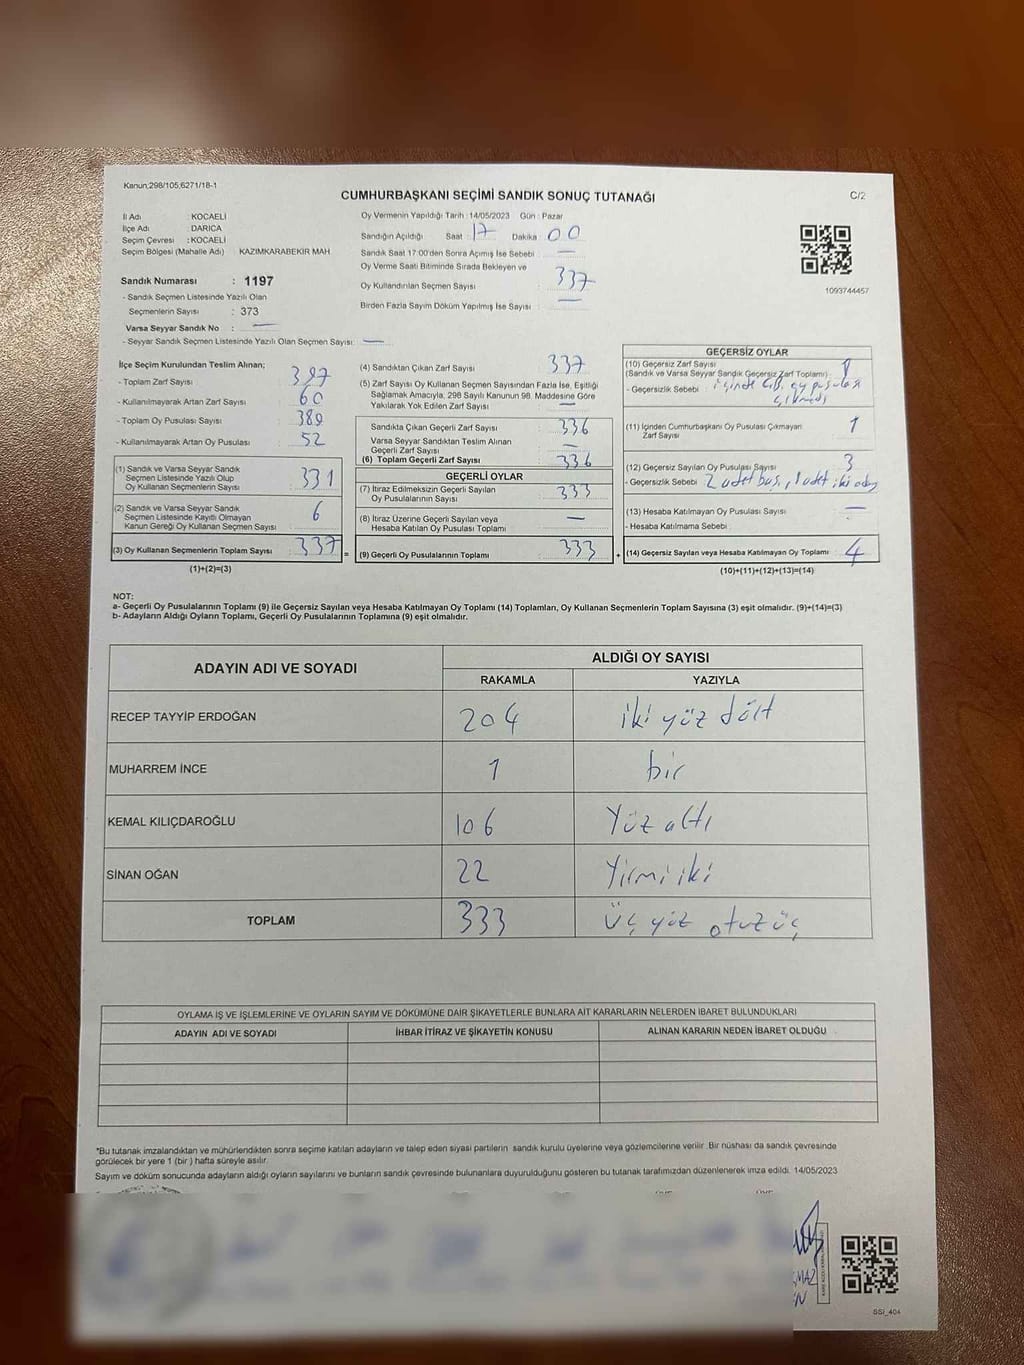 Kanun,298/105,6271/18-1
CUMHURBAŞKANI SEÇİMİ SANDIK SONUÇ TUTANAĞI
C/2
İl Adı : KOCAELİ
İlçe Adı : DARICA
Seçim Çevresi : KOCAELİ
Seçim Bölgesi (Mahalle Adı) KAZIMKARABEKİR MAH
Sandık Numarası : 1197
- Sandık Seçmen Listesinde Yazılı Olan
Seçmenlerin Sayısı : 373
Varsa Seyyar Sandık No : —
- Seyyar Sandık Seçmen Listesinde Yazılı Olan Seçmen Sayısı: —
Oy Vermenin Yapıldığı Tarih : 14/05/2023 Gün : Pazar
Sandığın Açıldığı Saat : 17 Dakika : 00
Sandık Saat 17:00'den Sonra Açımış İse Sebebi : —
Oy Verme Saati Bitiminde Sırada Bekleyen ve
Oy Kullandırılan Seçmen Sayısı : 337
Birden Fazla Sayım Döküm Yapılmış İse Sayısı : —
1093744457
İlçe Seçim Kurulundan Teslim Alınan;
- Toplam Zarf Sayısı : 397
- Kullanılmayarak Artan Zarf Sayısı : 60
- Toplam Oy Pusulası Sayısı : 389
- Kullanılmayarak Artan Oy Pusulası : 52
(1) Sandık ve Varsa Seyyar Sandık
Seçmen Listesinde Yazılı Olup
Oy Kullanan Seçmenlerin Sayısı : 331
(2) Sandık ve Varsa Seyyar Sandık
Seçmen Listesinde Kayıtlı Olmayan
Kanun Gereği Oy Kullanan Seçmen Sayısı : 6
(3) Oy Kullanan Seçmenlerin Toplam Sayısı : 337
(1)+(2)=(3)
(4) Sandıktan Çıkan Zarf Sayısı : 337
(5) Zarf Sayısı Oy Kullanan Seçmen Sayısından Fazla İse, Eşitliği
Sağlamak Amacıyla, 298 Sayılı Kanunun 98. Maddesine Göre
Yakılarak Yok Edilen Zarf Sayısı : —
Sandıkta Çıkan Geçerli Zarf Sayısı : 336
Varsa Seyyar Sandıktan Teslim Alınan
Geçerli Zarf Sayısı : —
(6) Toplam Geçerli Zarf Sayısı : 336
GEÇERLİ OYLAR
(7) İtiraz Edilmeksizin Geçerli Sayılan
Oy Pusulasının Sayısı : 333
(8) İtiraz Üzerine Geçerli Sayılan veya
Hesaba Katılan Oy Pusulası Toplamı : —
= (9) Geçerli Oy Pusulalarının Toplamı : 333
GEÇERSİZ OYLAR
(10) Geçersiz Zarf Sayısı
(Sandık ve Varsa Seyyar Sandık Geçersiz Zarf Toplamı) :
- Geçersizlik Sebebi : içinde C.B. oy pusulası
çıkmadı
(11) İçinden Cumhurbaşkanı Oy Pusulası Çıkmayan
Zarf Sayısı : 1
(12) Geçersiz Sayılan Oy Pusulası Sayısı : 3
- Geçersizlik Sebebi : 2 adet boş, 1 adet iki oy
(13) Hesaba Katılmayan Oy Pusulası Sayısı : —
- Hesaba Katılmama Sebebi :
+ (14) Geçersiz Sayılan veya Hesaba Katılmayan Oy Toplamı : 4
(10)+(11)+(12)+(13)=(14)
NOT:
a- Geçerli Oy Pusulalarının Toplamı (9) ile Geçersiz Sayılan veya Hesaba Katılmayan Oy Toplamı (14) Toplamları, Oy Kullanan Seçmenlerin Toplam Sayısına (3) eşit olmalıdır. (9)+(14)=(3)
b- Adayların Aldığı Oyların Toplamı, Geçerli Oy Pusulalarının Toplamına (9) eşit olmalıdır.
ADAYIN ADI VE SOYADI ALDIĞI OY SAYISI
RAKAMLA YAZIYLA
RECEP TAYYİP ERDOĞAN 204 iki yüz dört
MUHARREM İNCE 1 bir
KEMAL KILIÇDAROĞLU 106 Yüz altı
SİNAN OĞAN 22 Yirmi iki
TOPLAM 333 üç yüz otuz üç
OYLAMA İŞ VE İŞLEMLERİNE VE OYLARIN SAYIM VE DÖKÜMÜNE DAİR ŞİKAYETLERLE BUNLARA AİT KARARLARIN NELERDEN İBARET BULUNDUKLARI
ADAYIN ADI VE SOYADI İHBAR İTİRAZ VE ŞİKAYETİN KONUSU ALINAN KARARIN NEDEN İBARET OLDUĞU
*Bu tutanak imzalandıktan ve mühürlendikten sonra seçime katılan adayların ve talep eden siyasi partilerin sandık kurulu üyelerine veya gözlemcilerine verilir. Bir nüshası da sandık çevresinde
görülecek bir yere 1 (bir) hafta süreyle asılır.
Sayım ve döküm sonucunda adayların aldığı oyların sayılarını ve bunların sandık çevresinde bulunanlara duyurulduğunu gösteren bu tutanak tarafımızdan düzenlenerek imza edildi. 14/05/2023
SSİ_404